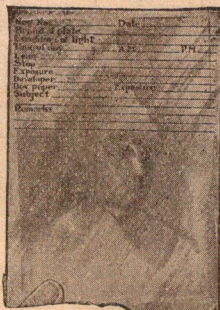 Neg. No. Date
Brand of plate
Condition of light
Time of day A.M. P.M.
Stop
Exposure
Developer
Dev. paper Exposure
Subject
Remarks